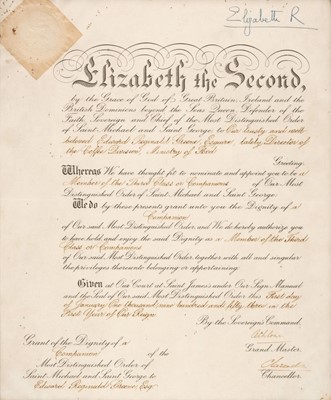 Elizabeth R
Elizabeth the Second,
by the Grace of God, of Great Britain, Ireland and the
British Dominions beyond the Seas Queen, Defender of the
Faith, Sovereign and Chief of the Most Distinguished Order
of Saint Michael and Saint George, to Our trusty and well-
beloved Edward Reginald Esquire, lately Director of
the Division, Ministry of Food
Greeting
Whereas We have thought fit to nominate and appoint you to be a
Member of the Third Class or Companions of Our Most
Distinguished Order of Saint Michael and Saint George
We do by these presents grant unto you the Dignity of a
Companion
of Our said Most Distinguished Order and We do hereby authorize you
to have hold and enjoy the said Dignity as a Member of the Third
Class or Companions
of Our said Most Distinguished Order together with all and singular
the privileges thereunto belonging or appertaining.
Given at Our Court at Saint James's under Our Sign Manual
and the Seal of Our said Most Distinguished Order this First day
of January One thousand nine hundred and fifty three in the
First Year of Our Reign.
By the Sovereign's Command,
Athlone
Grand Master.
Chancellor.
Grant of the Dignity of a
Companion of the
Most Distinguished Order of
Saint Michael and Saint George to
Edward Reginald Esq.